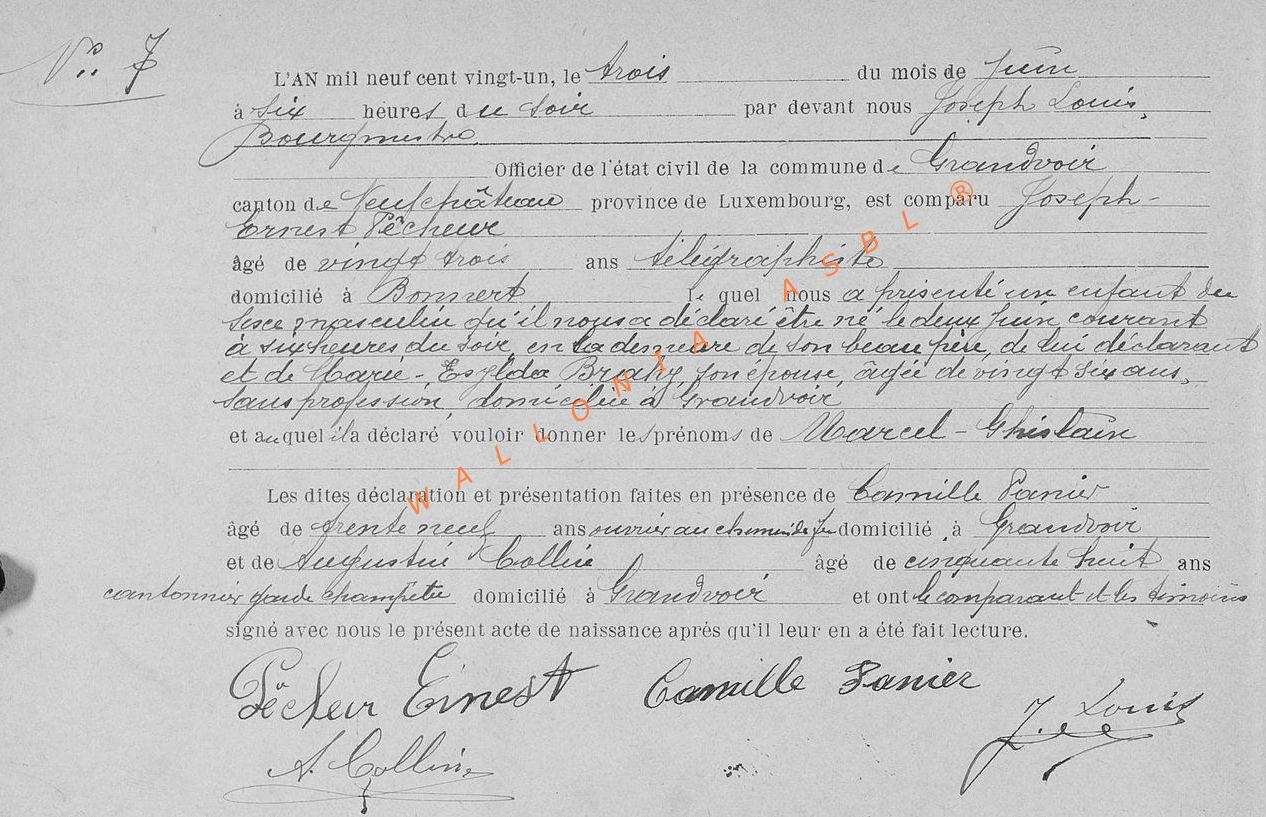 No. 7
L'AN mil neuf cent vingt-un, le trois du mois de Juin
à six heures du soir par devant nous Joseph Louis,
Bourgmestre
Officier de l'état civil de la commune de Grandvoir
canton de Neufchâteau province de Luxembourg, est comparu Joseph-
Ernest Pêcheur
âgé de vingt trois ans télégraphiste
domicilié à Bonnert le quel nous a présenté un enfant du
sexe masculin qu'il nous a déclaré être né le deux Juin courant
à six heures du soir, en la demeure de son beau père, de lui déclarant
et de Marie-, son épouse, âgée de vingt six ans,
sans profession, domiciliée à Grandvoir
et auquel il a déclaré vouloir donner les prénoms de Marcel-Ghislain
Les dites déclaration et présentation faites en présence de Camille Panier
âgé de trente neuf ans ouvrier au chemin de fer domicilié à Grandvoir
et de Augustin Collin âgé de cinquante huit ans
cantonnier garde champêtre domicilié à Grandvoir et ont le comparant et les témoins
signé avec nous le présent acte de naissance aprés qu'il leur en a été fait lecture.
Pêcheur Ernest Camille Panier
J. Louis
A. Collin
WALLONIA ASBL ®